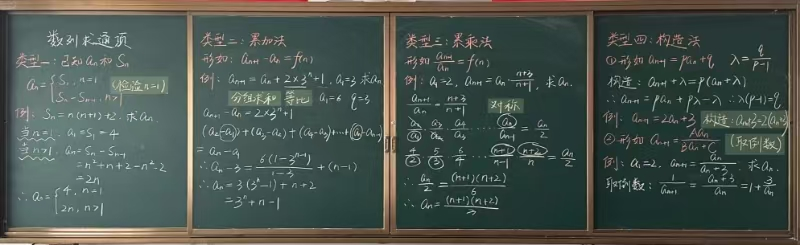 数列求通项
类型一:已知an和Sn
an={S1, n=1
Sn-Sn-1, n>1
(检验n=1)
例: Sn=n(n+1)+2. 求an.
当n=1. a1=S1=4
当n>1. an=Sn-Sn-1
=n²+n+2-n²+n-2
=2n
∴an={4, n=1
2n, n>1
类型二:累加法
形如: an+1-an=f(n)
例: an+1=an+2×3ⁿ+1, a1=3 求an
分组求和 等比 a1=6 q=3
an+1-an=2×3ⁿ+1
(a2-a1)+(a3-a2)+(a4-a3)+…+(an-an-1)
=an-a1
∴an-3=6(1-3ⁿ⁻¹)/(1-3)+(n-1)
∴an=3(3ⁿ⁻¹-1)+n+2
=3ⁿ+n-1
类型三:累乘法
形如 an+1/an=f(n)
例: a1=2, an+1=an·(n+3)/(n+1), 求an.
an+1/an=(n+3)/(n+1) 对称
a2/a1 a3/a2 a4/a3 … an/an-1=an/2
4/2 5/3 6/4 … (n+1)/(n-1) (n+2)/n=an/2
∴an/2=(n+1)(n+2)/6
∴an=(n+1)(n+2)/3
类型四:构造法
①形如 an+1=pan+q, λ=q/(p-1)
构造: an+1+λ=p(an+λ)
∴an+1=pan+pλ-λ ∴λ(p-1)=q
例: an+1=2an+3 构造: an+1+3=2(an+3)
②形如 an+1=Aan/(Ban+C) (取倒数)
例: a1=2, an+1=an/(an+3), 求an.
取倒数: 1/an+1=(an+3)/an=1+3/an